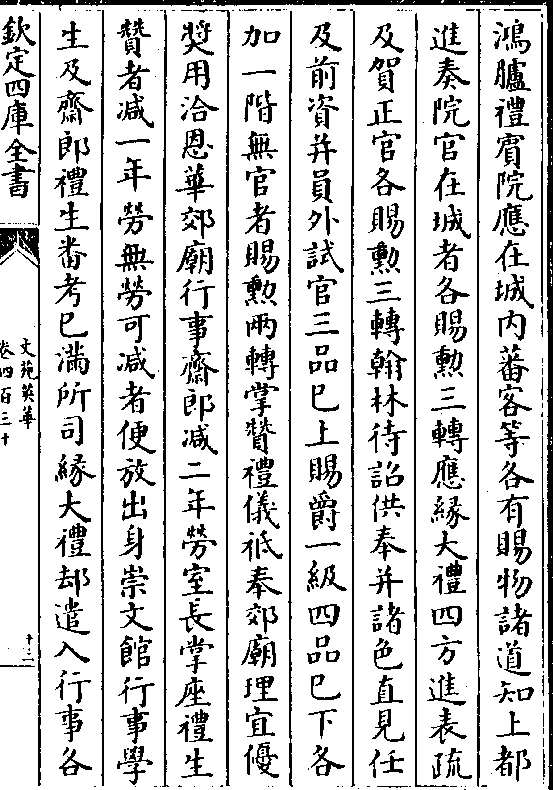 鴻臚禮賓院應在城内蕃客等各有賜物諸道知上都
進奏院官在城者各賜勲三轉應緣大禮四方進表疏
及賀正官各賜勲三轉翰林待詔供奉并諸色直見任
及前資并員外試官三品已上賜爵一級四品已下各
加一階無官者賜勲兩轉掌贊禮儀祗奉郊廟理宜優
奬用洽恩華郊廟行事齋郎减二年勞室長掌座禮生
贊者减一年勞無勞可减者便放出身崇文館行事學
生及齋郎禮生畨考已滿所司緣大禮却遣入行事各
欽定四庫全書
文苑英華
卷四百三十
十二